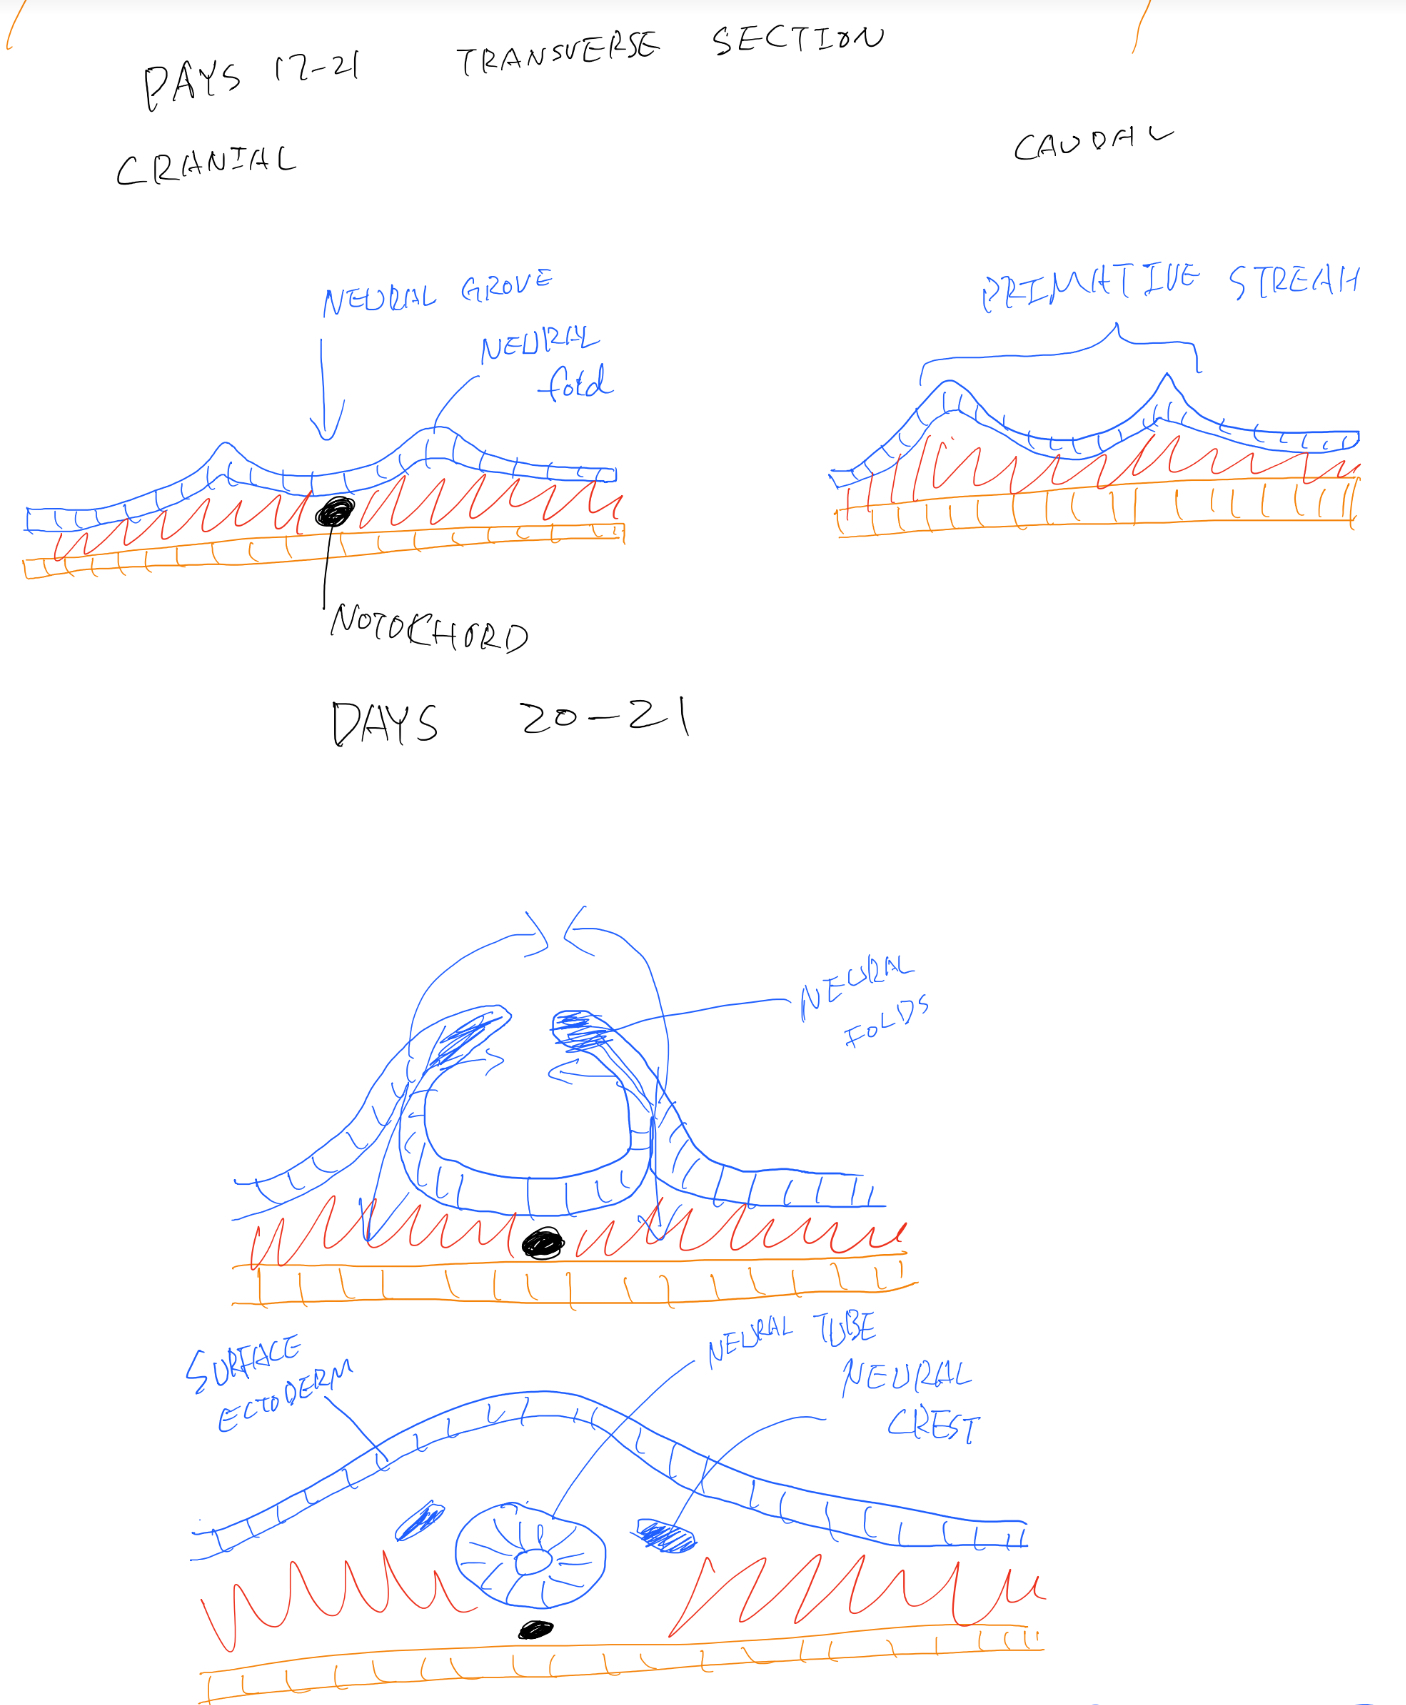 DAYS 17-21 TRANSVERSE SECTION
CRANIAL
CAUDAL
NEURAL GROVE
NEURAL
fold
PRIMATIVE STREAK
NOTOCHORD
DAYS 20-21
NEURAL
FOLDS
SURFACE
ECTODERM
NEURAL TUBE
NEURAL
CREST